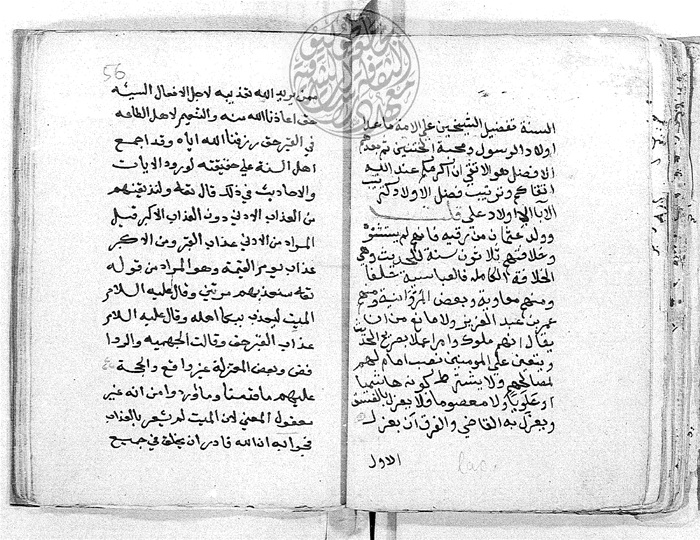 السنة تفضيل الشيخين على الامة ماعدا
اولاد الرسول ومحبة الختنين ثم بعدهم
الافضل هو الاتقى ان اكرمكم عند الله
اتقاكم وترتيب فضل الاولاد كترتيب
الآباء الا اولاد على
وولد عثمان من رقيه فانهم لم
وخلافتهم ثلاثون سنة للحديث وهى
الخلافة الكاملة فالعباسية خلفا
ومنهم معاوية وبعض المروانية ومنهم
عمر بن عبد العزيز ولا مانع من ان
يقال انهم ملوك وامراء عملا بصريح الحديث
ويتعين على المومنين نصب امام لهم
لمصالحهم ولا يشترط كونه هاشميا
او علويا ولا معصوما ولا يعزل بالفسق
ويعزل به القاضي والفرق ان بعزل
الاول
56
ممن يريد الله تعذيبه لاجل الافعال السيئه
حق اعاذنا الله منه والنعيم لاهل الطاعه
في القبر حق رزقنا الله اياه وقد اجمع
اهل السنة على حقيقته لورود الايات
والاحاديث في ذلك قال تعالى ولنذيقنهم
من العذاب الادنى دون العذاب الاكبر قيل
المراد من الادنى عذاب القبر ومن الاكبر
عذاب يوم القيمة وهو المراد من قوله
تعالى سنعذبهم مرتين وقال عليه السلام
الميت ليعذب ببكا اهله وقال عليه السلام
عذاب القبر حق وقالت الجهميه والروا
فض وبعض المعتزلة غير واقع والحجة
عليهم ما قدمنا وما اوردوا من انه غير
معقول المعنى لان الميت لم يشعر بالعذاب
فجوابه ان الله قادر ان يخلق في جميع